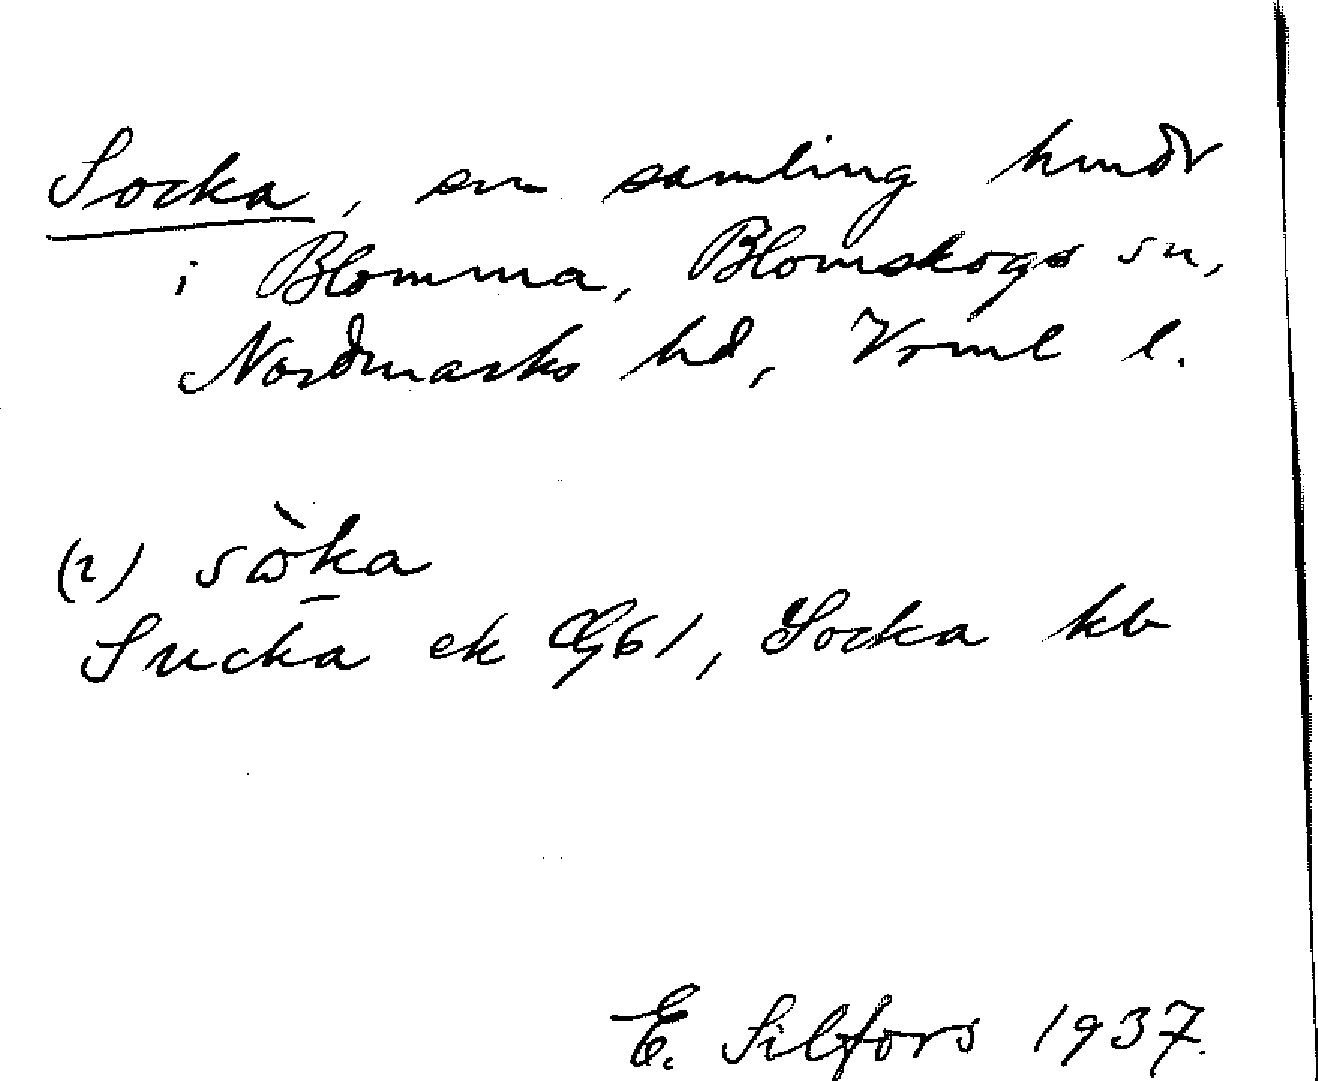 Socka, en samling hmdr
i Blomma, Blomskogs sn,
Nordmarks hd, Vrml l.
(2) sὼka
Sucka ek Gg61, Socka kb
E. Silfors 1937.